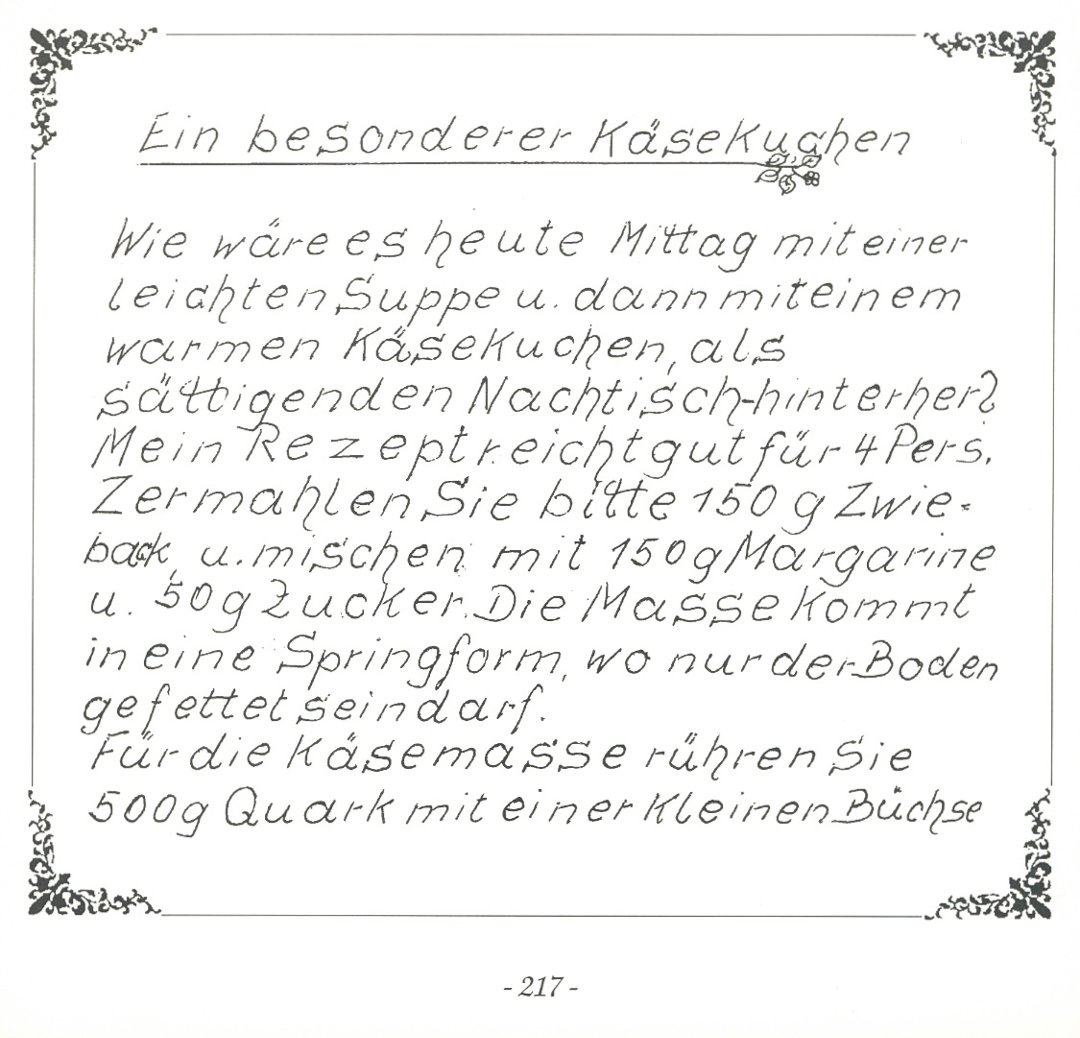 Ein besonderer Käsekuchen
Wie wäre es heute Mittag mit einer
leichten Suppe u. dann mit einem
warmen Käsekuchen, als
sättigenden Nachtisch-hinterher?
Mein Rezept reicht gut für 4 Pers.
Zermahlen Sie bitte 150 g Zwie-
back, u. mischen mit 150g Margarine
u. 50g Zucker. Die Masse kommt
in eine Springform, wo nur der Boden
gefettet sein darf.
Für die Käsemasse rühren Sie
500g Quark mit einer kleinen Büchse
- 217 -